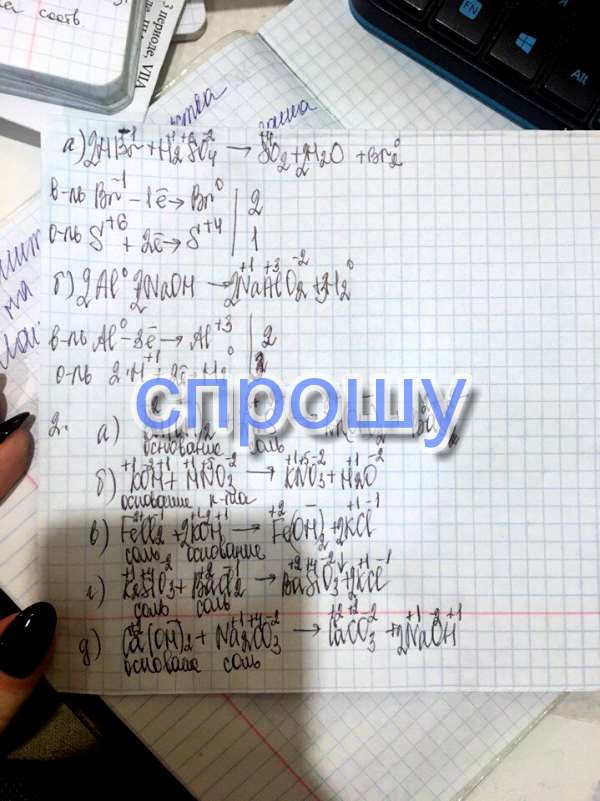 3 периоде, VIIA
FN
Alt
а) 2HBr + H2SO4 → SO2 + 2H2O + Br2
в-ль Br⁻¹ - 1ē → Br⁰ | 2
о-ль S⁺⁶ + 2ē → S⁺⁴ | 1
б) 2Al⁰ 2NaOH → 2NaAlO2 + 3H2⁰
в-ль Al⁰ - 3ē → Al⁺³ | 2
о-ль 2H⁺¹
спрошу
2. а)
основание соль
б) KOH + HNO3 → KNO3 + H2O
основание к-та
в) FeCl2 + 2KOH → Fe(OH)2 + 2KCl
соль основание
г) K2SiO3 + BaCl2 → BaSiO3 + 2KCl
соль соль
д) Ca(OH)2 + Na2CO3 → CaCO3 + 2NaOH
основание соль